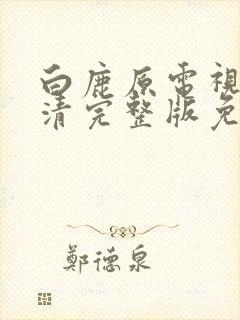 白鹿原電視
清完整版免
鄭德泉